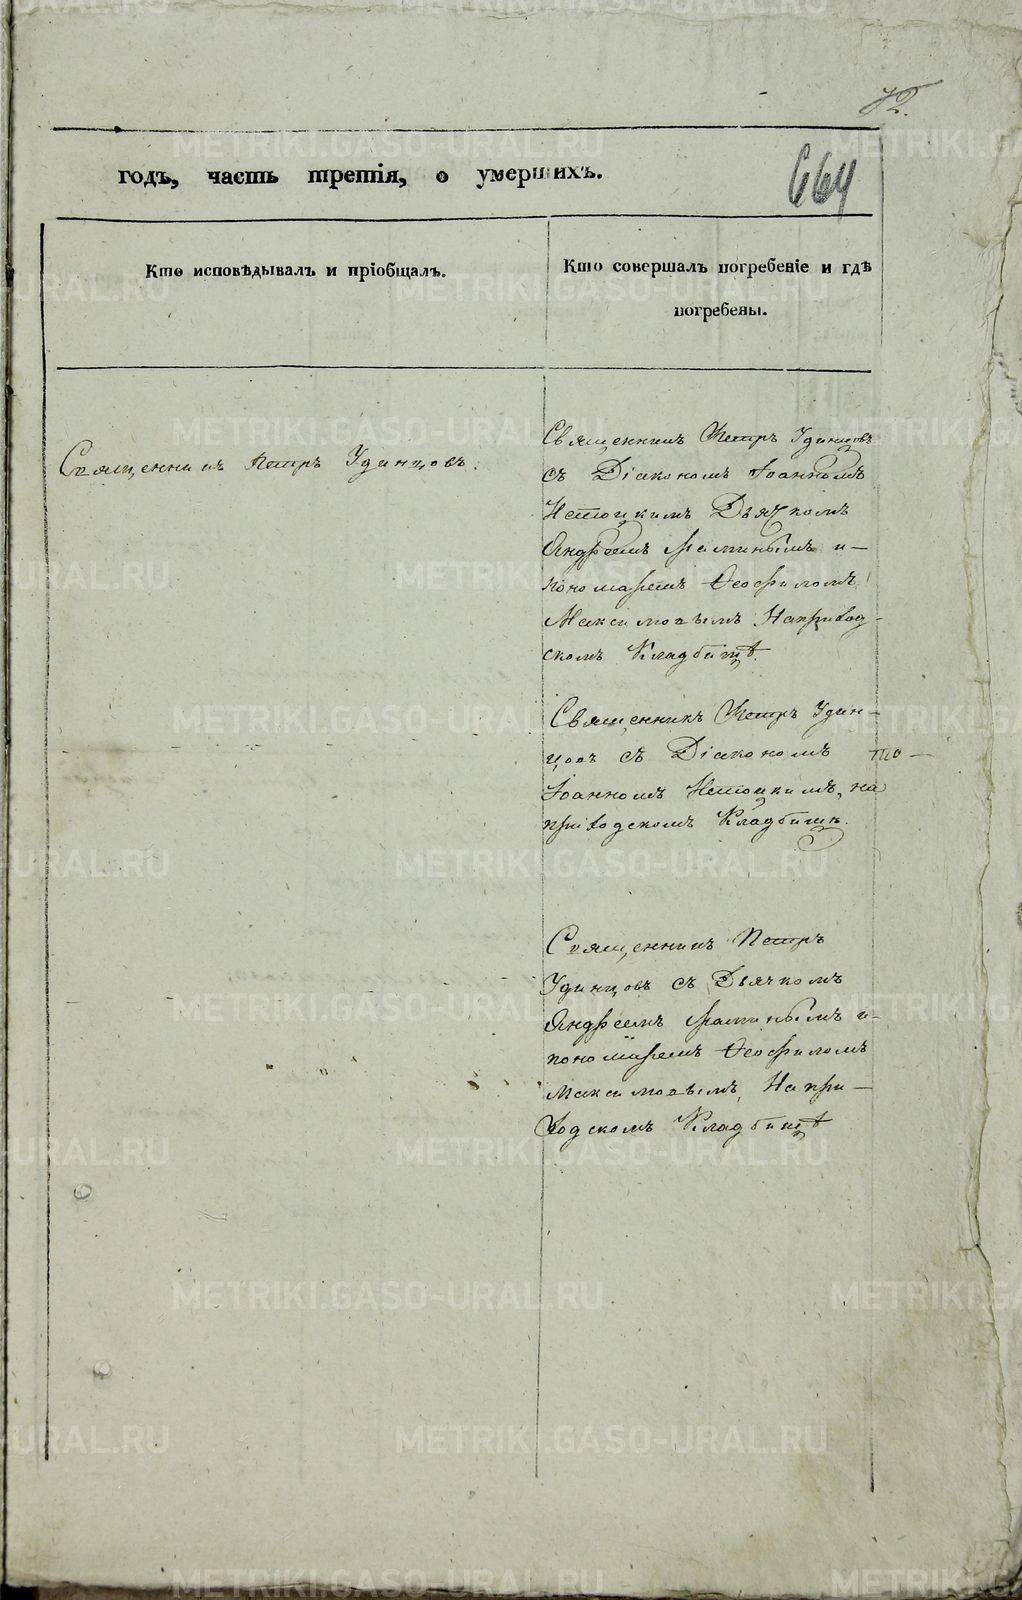 72.
664
годъ, часть третія, о умершихъ.
Кто исповѣдывалъ и пріобщалъ.
Кто совершалъ погребеніе и гдѣ
погребены.
Священникъ Петръ Удинцовъ.
Священникъ Петръ Удинцовъ
съ Діакономъ Іоанномъ
Дьячкомъ
Андреемъ и
пономаремъ Ѳеофиломъ
Максимовымъ На приход-
скомъ Кладбищѣ.
Священникъ Петръ Удин-
цовъ съ Діакономъ
Іоанномъ на
приходскомъ Кладбищѣ.
Священникъ Петръ
Удинцовъ съ Дьячкомъ
Андреемъ и
пономаремъ Ѳеофиломъ
Максимовымъ, На при-
ходскомъ Кладбищѣ
METRIKI.GASO-URAL.RU